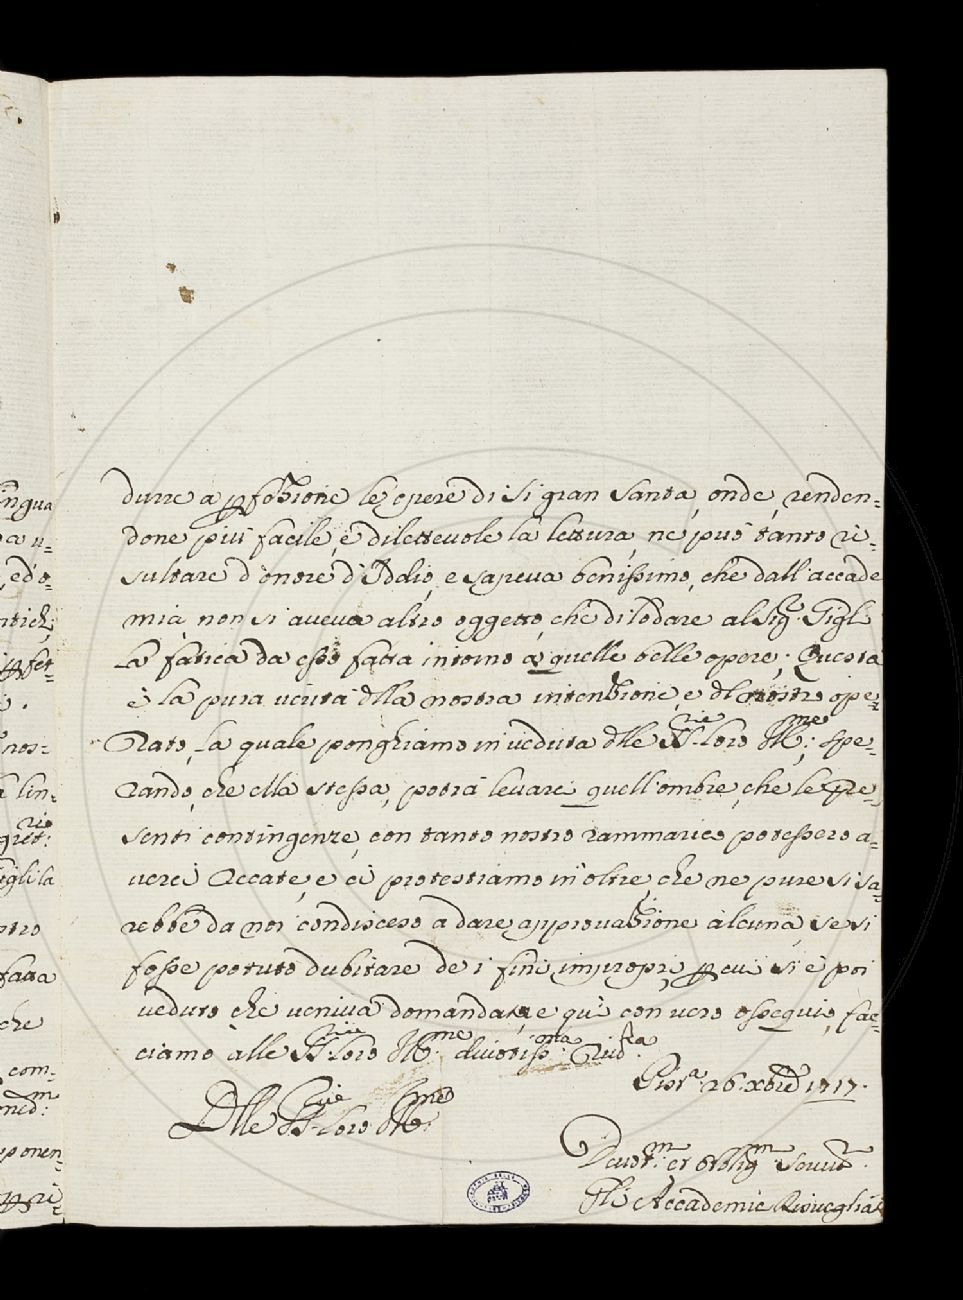 durre a pfezione le opere di si gran santa, onde, renden-
done piu facile, e dilettevole la lettura, ne può tanto ri-
sultare d'onore d'Iddio, e sapeva benissimo, che dall'accade
mia non si aveva altro oggetto, che di lodare al Sig.r Gigli
la fatica da esso fatta intorno a quelle belle opere; Questa
è la pura verità dlla nostra intenzione, e dl nostro ope-
rato, la quale ponghiamo in veduta dlle SS.rie loro Ill.me; spe-
rando, che ella stessa, potrà levare quell'ombre, che le pre-
senti contingenze, con tanto nostro rammarico potessero a-
verci recate, e ci protestiamo in oltre, che ne pure si sa-
rebbe da noi condisceso a dare approvazione alcuna, se si
fosse potuto dubitare de i fini improprj, p cui si è poi
veduto che veniva domandata, e quì con vero ossequio, fac-
ciamo alle SS.rie loro Ill.me divotiss.ma Riv.za
Pist.a 26 Xbre 1717.
Dlle SS.rie loro Ill.me
Devot.mi et Obblig.mi Servit.ri
Gli Accademici Risvegliati
ingua
ed o-
nos-
a lin-
gret:rio
igli la
stro
fatta
che
com-
ponen-